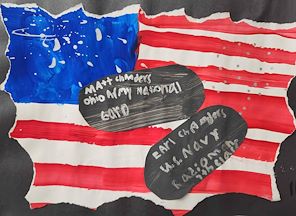 Matt Chanders
Ohio Army National
Gard
Earl Chanders
U.S. NAVY